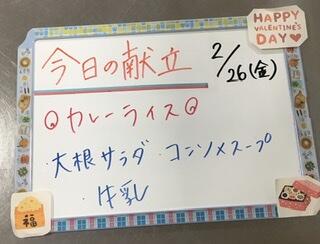 HAPPY
VALENTINE'S
DAY♥
今日の献立
2/26(金)
カレーライス
・大根サラダ ・コンソメスープ
・牛乳
福